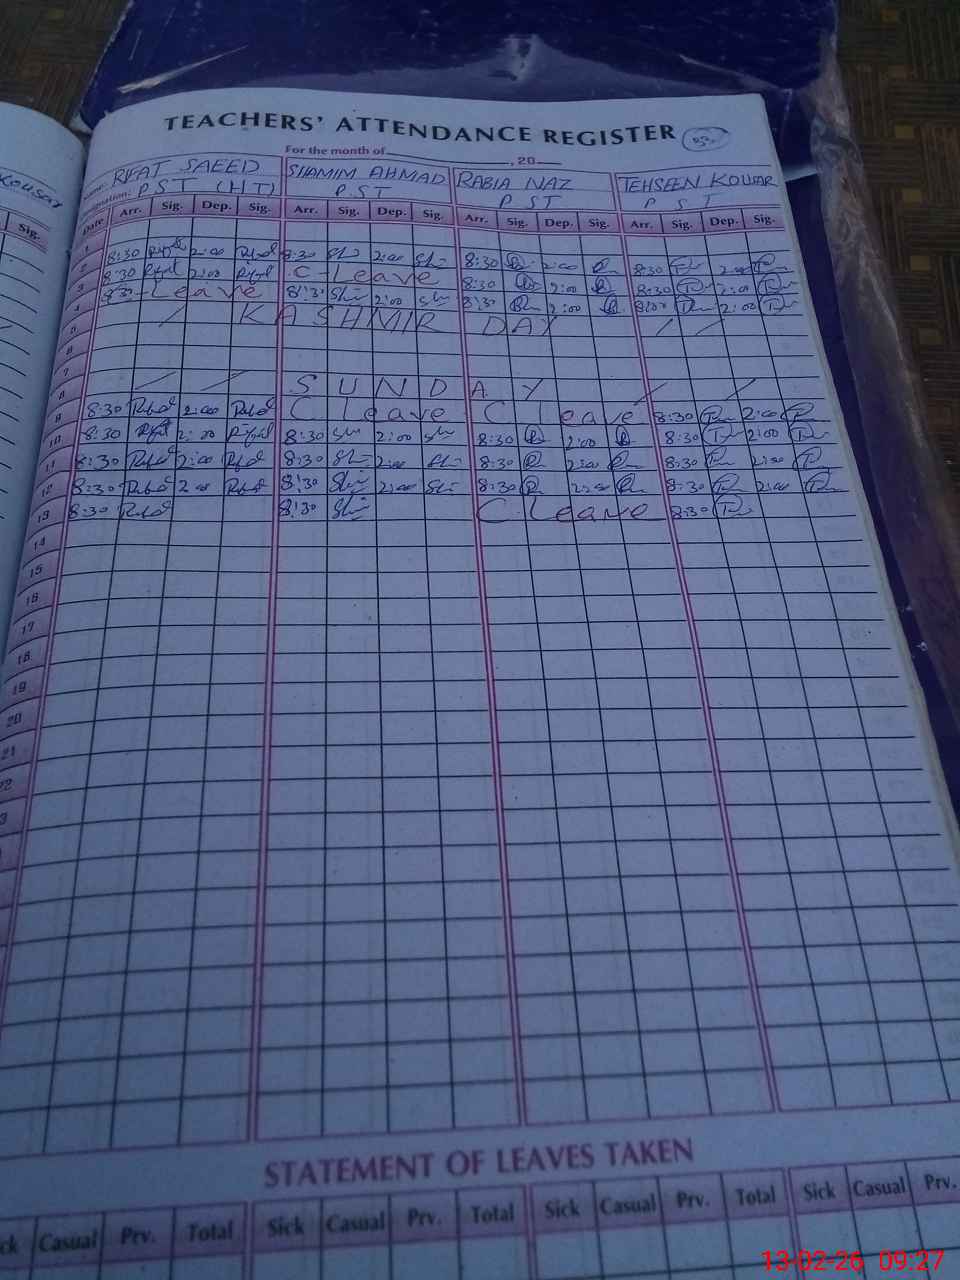 TEACHERS' ATTENDANCE REGISTER
For the month of , 20
Name: RFAT SAEED SHAMIM AHMAD RABIA NAZ TEHSEEN KOUSAR
PST (HT) PST PST PST
Date Arr. Sig. Dep. Sig. Arr. Sig. Dep. Sig. Arr. Sig. Dep. Sig. Arr. Sig. Dep. Sig.
1
2 8:30 2:00 8:30 2:00 8:30 2:00 8:30 2:00
3 8:30 2:00 C-Leave 8:30 2:00 8:30 2:00
4 Leave 8:30 2:00 8:30 2:00 2:00
5 KASHMIR DAY
6
7
8 SUNDAY
9 8:30 2:00 C Leave C Leave 8:30 2:00
10 8:30 2:00 8:30 2:00 8:30 2:00 8:30 2:00
11 8:30 2:00 8:30 2:00 8:30 2:00 8:30 2:00
12 8:30 2:00 8:30 2:00 8:30 2:00 8:30 2:00
13 8:30 8:30 C-Leave 8:30
14
15
16
17
18
19
20
21
22
STATEMENT OF LEAVES TAKEN
Casual Prv. Total Sick Casual Prv. Total Sick Casual Prv. Total Sick Casual Prv.
13-02-26 09:27